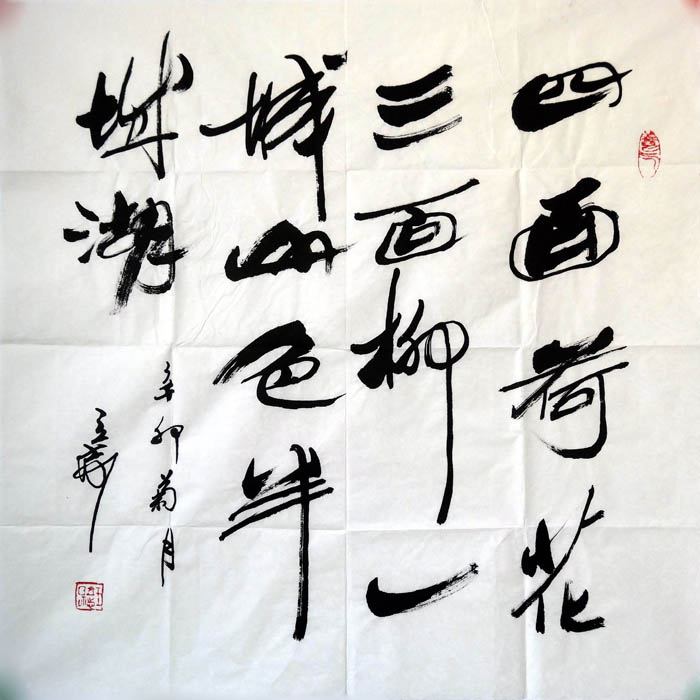 四面荷花
三面柳一
城山色半
城湖
辛卯菊月